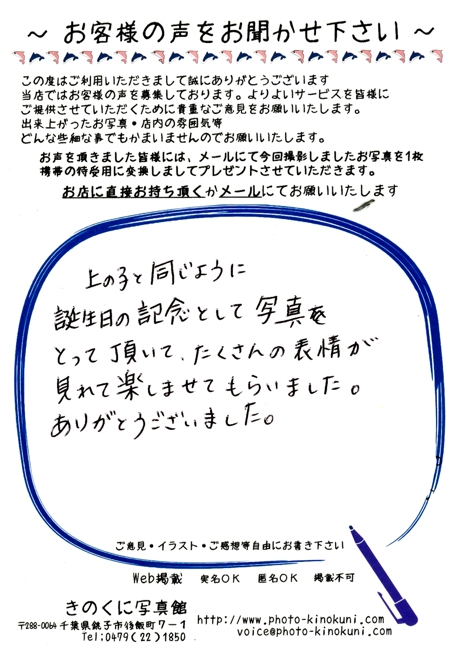 ～ お客様の声をお聞かせ下さい ～
この度はご利用いただきまして誠にありがとうございます
当店ではお客様の声を募集しております。よりよいサービスを皆様に
ご提供させていただくために貴重なご意見をお願いいたします。
出来上がったお写真・店内の雰囲気等
どんな些細な事でもかまいませんのでお願いいたします。
お声を頂きました皆様には、メールにて今回撮影しましたお写真を1枚
携帯の待受用に変換しましてプレゼントさせていただきます。
お店に直接お持ち頂くかメールにてお願いいたします
上の子と同じように
誕生日の記念として写真を
とって頂いて、たくさんの表情が
見れて楽しませてもらいました。
ありがとうございました。
ご意見・イラスト・ご感想等自由にお書き下さい
Web掲載 実名OK 匿名OK 掲載不可
きのくに写真館
〒288-0064 千葉県銚子市後飯町7－1
Tel;0479(22)1850
http://www.photo-kinokuni.com/
voice@photo-kinokuni.com